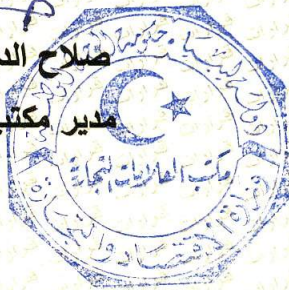 صلاح الد
مدير مكتب
دولة ليبيا حكومة
مكتب العلامات التجارية
وزارة الاقتصاد والتجارة